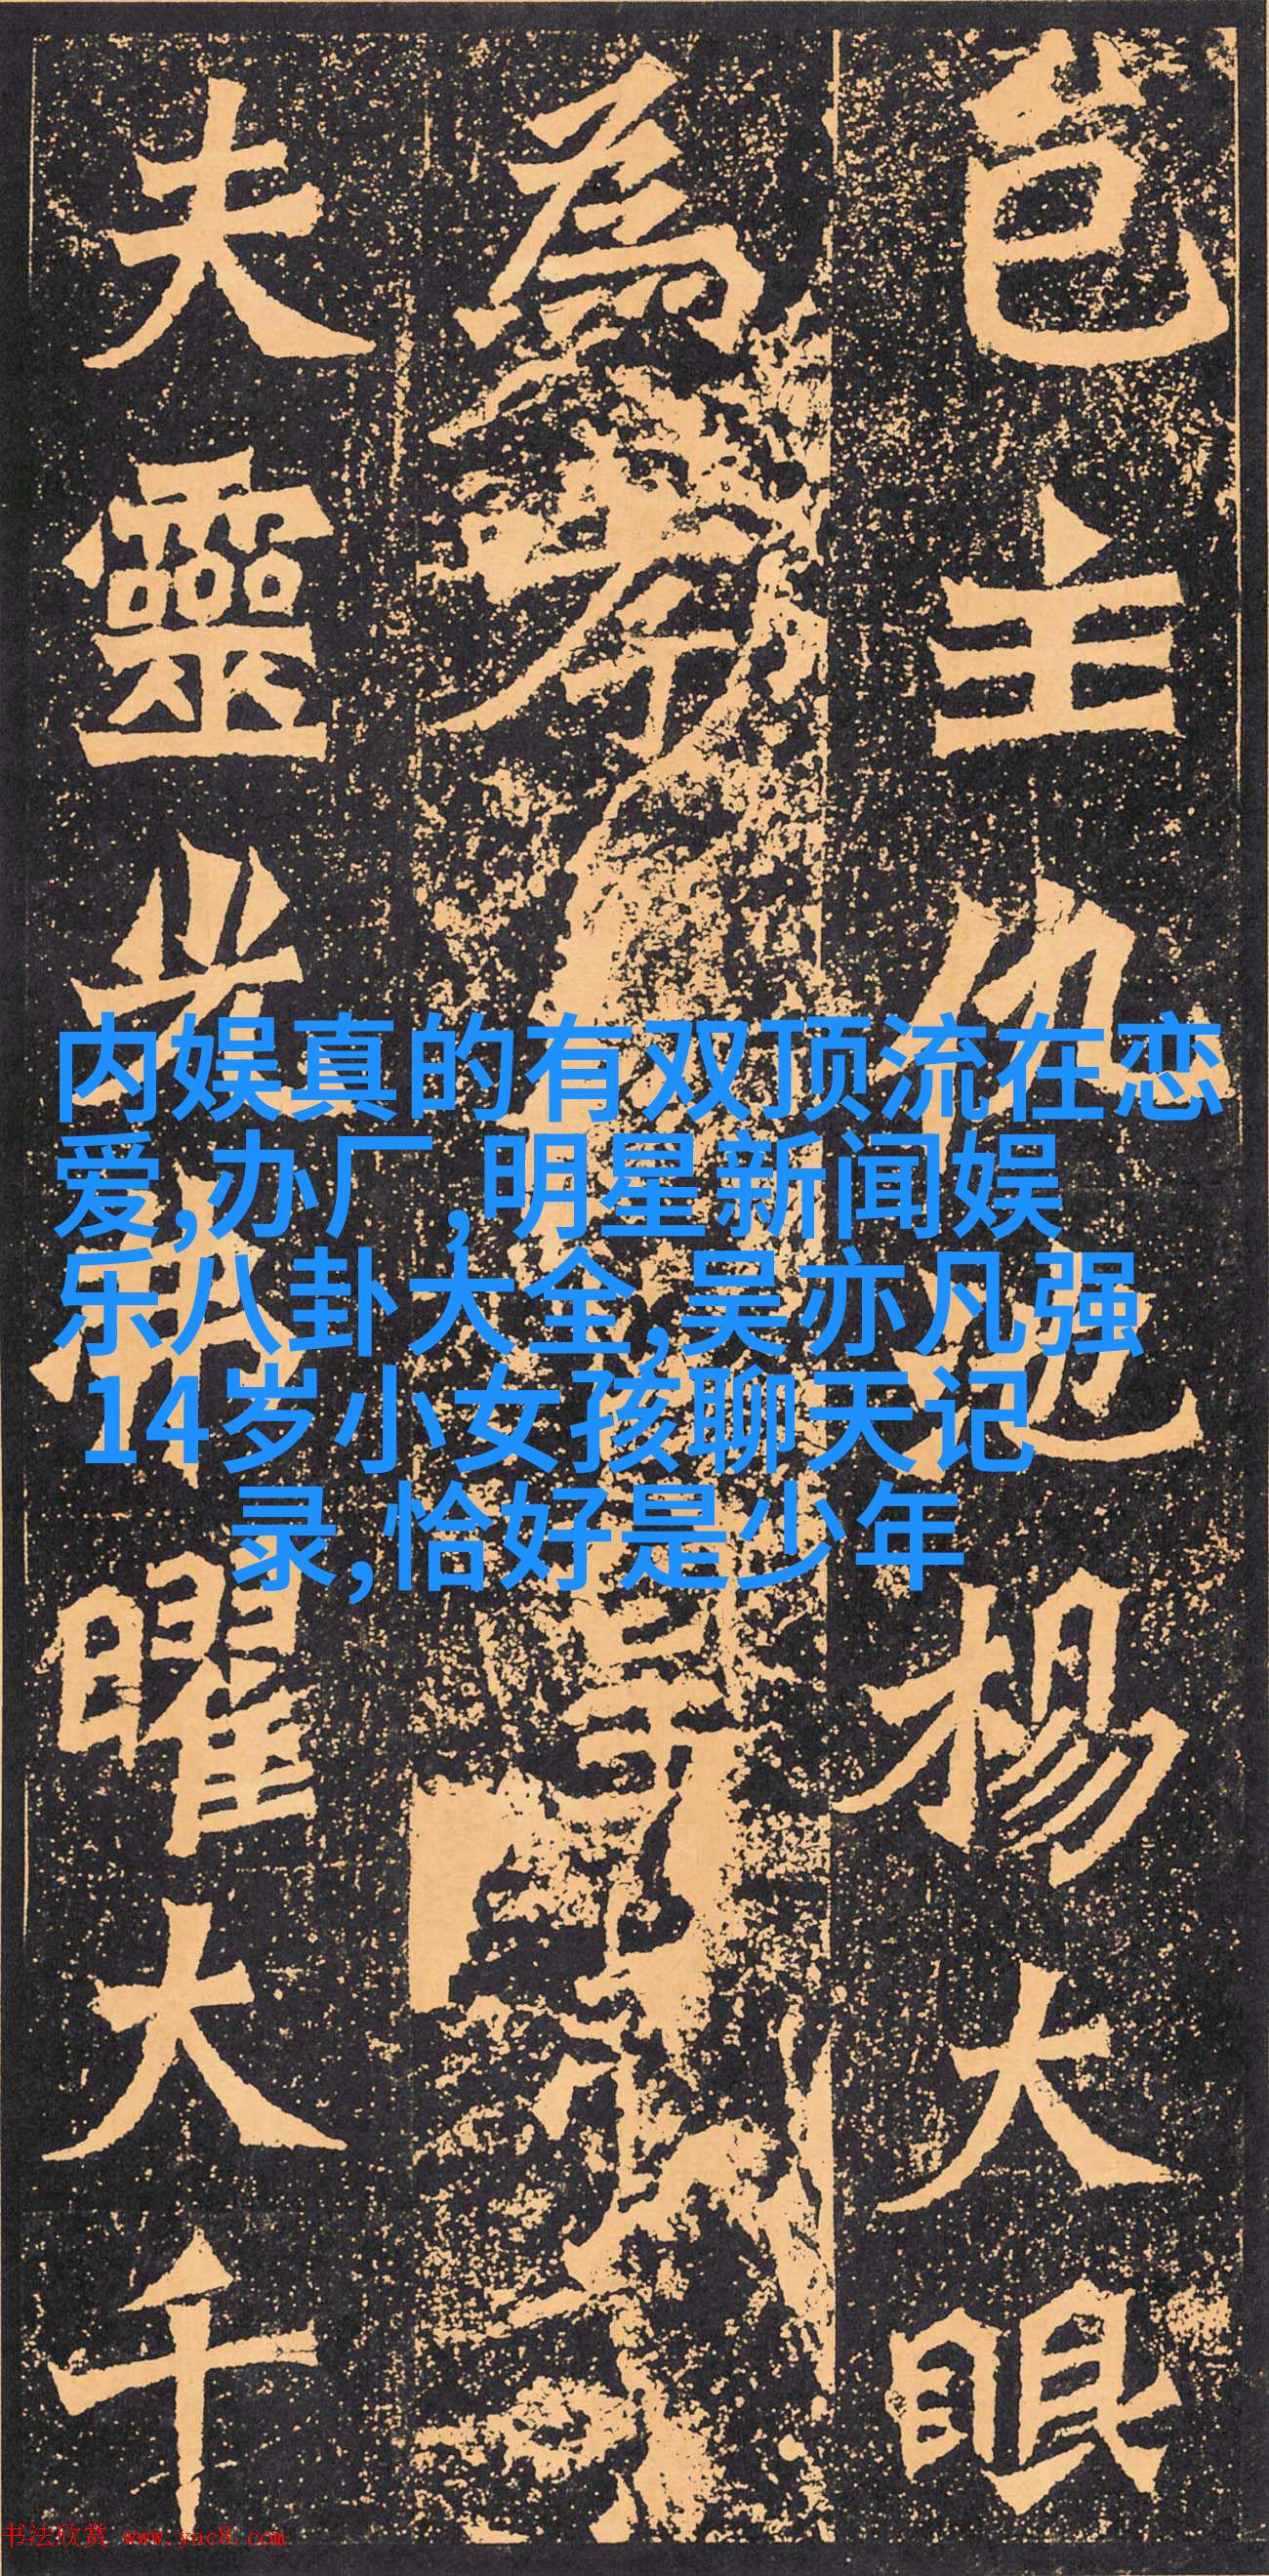 邑主仇池楊大眼
為孝
夫靈光弗曜大千
内娱真的有双顶流在恋
爱,办厂,明星新闻娱
乐八卦大全,吴亦凡强
14岁小女孩聊天记
录,恰好是少年
书法欣赏 www.yac8.com